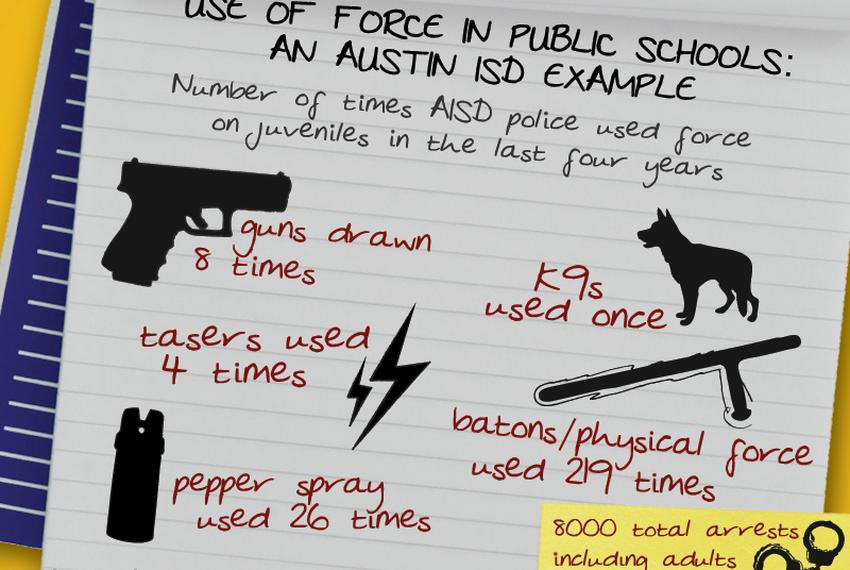 USE OF FORCE IN PUBLIC SCHOOLS:
AN AUSTIN ISD EXAMPLE
Number of times AISD police used force
on juveniles in the last four years
guns drawn
8 times
K9s
used once
tasers used
4 times
batons/physical force
used 219 times
pepper spray
used 26 times
8000 total arrests
including adults